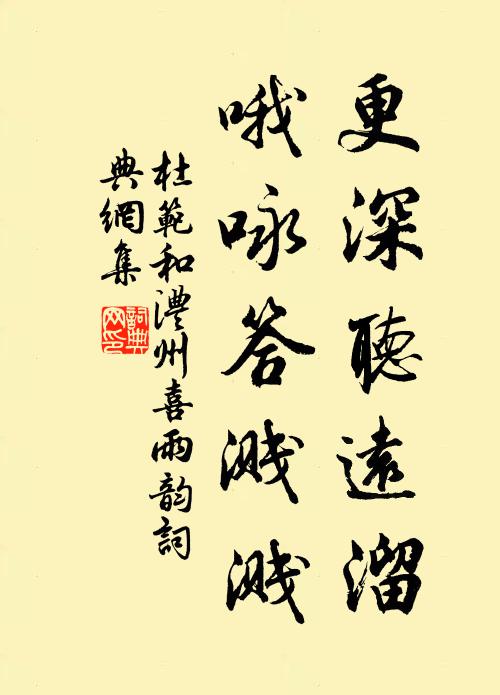 更深聽遠溜
哦咏答濺濺
杜範和澧州喜雨韵詞
典網集
詞典网印